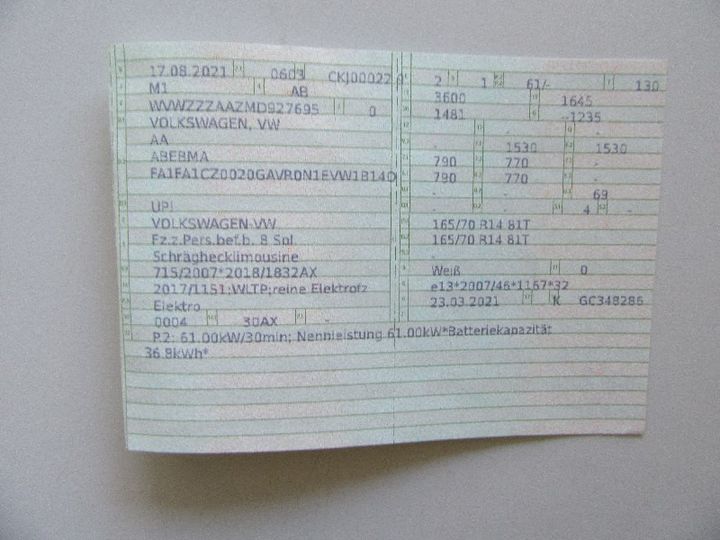 17.08.2021 0603 CKJ00022 0
M1 AB
WVWZZZAAZMD927695 0
VOLKSWAGEN, VW
AA
ABEBMA
FA1FA1CZ0020GAVR0N1EVW1B14O
UP!
VOLKSWAGEN-VW
Fz.z.Pers.bef.b. 8 Spl.
Schräghecklimousine
715/2007*2018/1832AX
2017/1151;WLTP;reine Elektrofz
Elektro
0004 30AX -
P.2: 61.00kW/30min; Nennleistung 61.00kW*Batteriekapazität
36.8kWh*
2 1 61/- 130
3600 1645
1481 --1235
- - -
- 1530 1530
790 770 -
790 770 -
- - 69
- - 4 -
165/70 R14 81T
165/70 R14 81T
-
Weiß 0
e13*2007/46*1167*32
23.03.2021 K GC348286